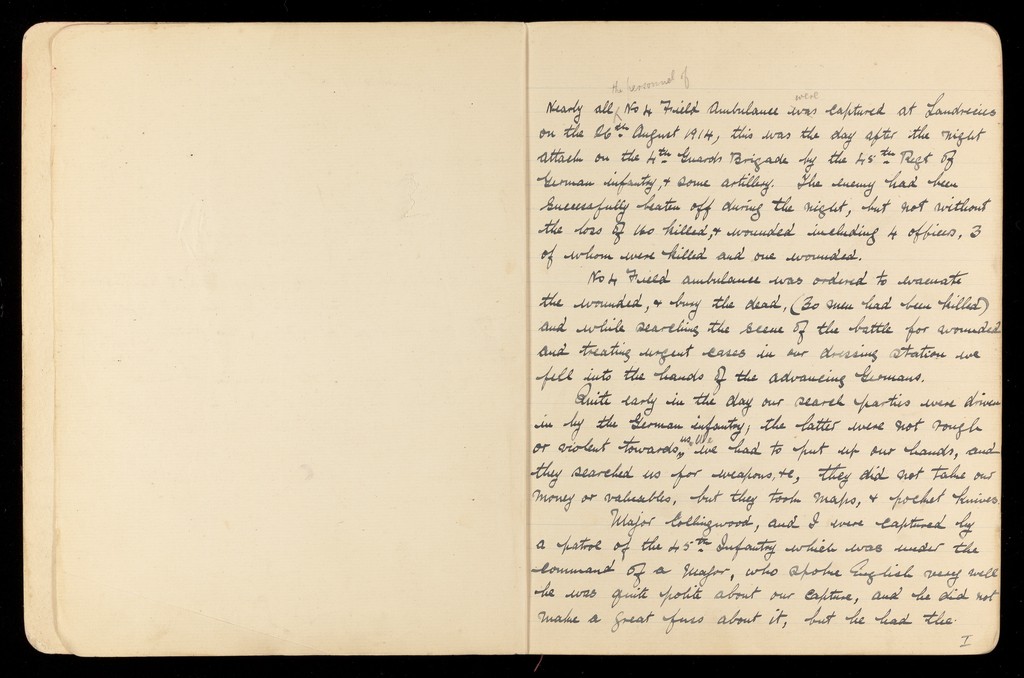 the personnel of
were
Nearly all No 4 Field Ambulance was captured at Landrecies
on the 26th August 1914, this was the day after the night
attack on the 4th Guards Brigade by the 45th Regt of
German infantry, & some artillery. The enemy had been
successfully beaten off during the night, but not without
the loss of 160 killed, & wounded including 4 officers, 3
of whom were killed and one wounded.
No 4 Field ambulance was ordered to evacuate
the wounded, & bury the dead, (30 men had been killed)
and while searching the scene of the battle for wounded
and treating urgent cases in our dressing station we
fell into the hands of the advancing Germans.
Quite early in the day our search parties were driven
in by the German infantry; the latter were not rough
or violent towards us. We had to put up our hands, and
they searched us for weapons, &c, they did not take our
money or valuables, but they took maps, & pocket knives.
Major Collingwood, and I were captured by
a patrol of the 45th Infantry which was under the
command of a Major, who spoke English very well
he was quite polite about our capture, and he did not
make a great fuss about it, but he had the
I